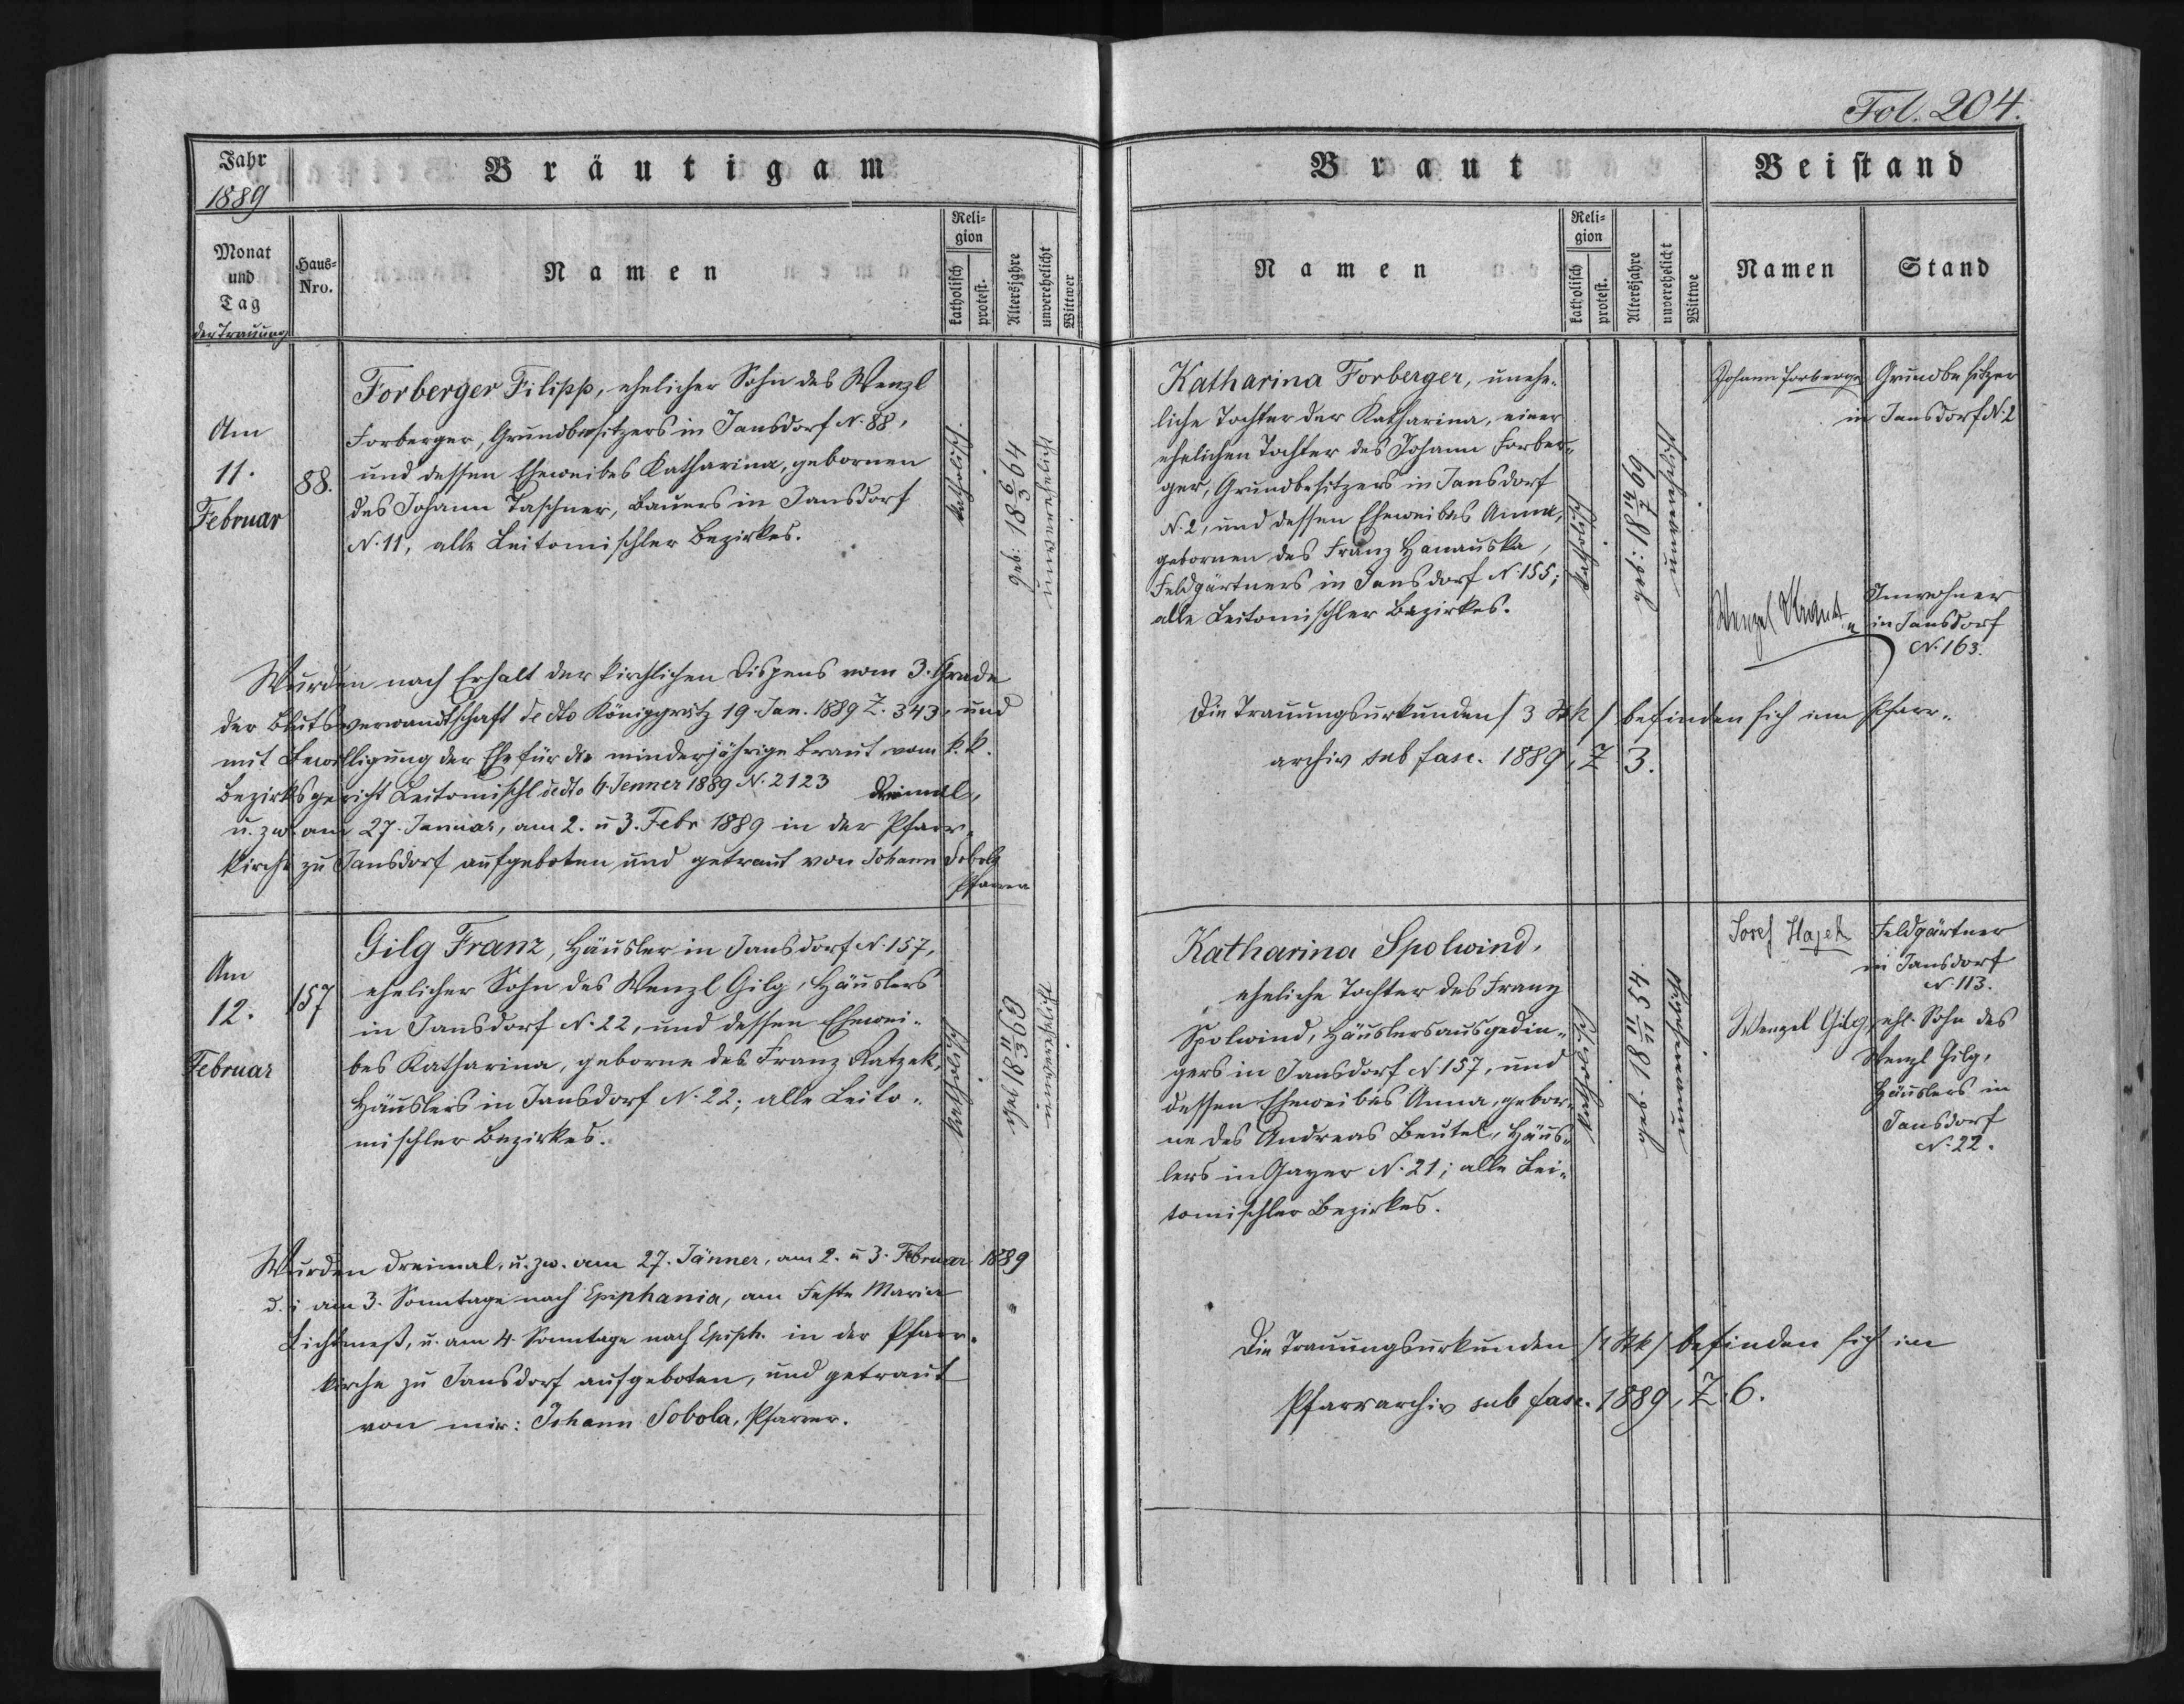 Fol. 204.
Jahr
1889
Bräutigam
Monat
und
Tag
der Trauung
Haus-
Nro.
Namen
Reli-
gion
katholisch
protest.
Altersjahre
unverehelicht
Wittwer
Am
11.
Februar
88.
Forberger Filipp, ehelicher Sohn des Wenzl
Forberger, Grundbesitzers in Jansdorf N. 88,
und dessen Eheweibes Katharina, gebornen
des Johann Taschner, Bauers in Jansdorf
N. 11, alle Leitomischler Bezirkes.
katholisch.
geb: 18 6/3 64
unverehelicht
Wurden nach Erhalt der kirchlichen Dispens vom 3. Grade
der Blutsverwandtschaft de dto Königgrätz 19. Jan. 1889 Z. 343, und
mit Bewilligung der Ehe für die minderjährige Braut vom k. k.
Bezirksgericht Leitomischl de dto 6. Jenner 1889 N. 2123 dreimal,
u. zw. am 27. Januar, am 2. u 3. Febr 1889 in der Pfarr-
kirche zu Jansdorf aufgeboten und getraut von Johann Sobola
Pfarrer
Am
12.
Februar
157
Gilg Franz, Häusler in Jansdorf N. 157,
ehelicher Sohn des Wenzl Gilg, Häuslers
in Jansdorf N. 22, und dessen Ehewei-
bes Katharina, geborne des Franz Ratzek,
Häuslers in Jansdorf N. 22; alle Leito-
mischler Bezirkes.
katholisch
geb 18 11/3 69
unverehelicht
Wurden dreimal, u. zw. am 27. Jänner, am 2. u 3. Februar 1889
d. i am 3. Sonntage nach Epiphania, am Feste Maria
Lichtmeß, u. am 4. Sonntage nach Epiph. in der Pfarr-
kirche zu Jansdorf aufgeboten, und getraut
von mir: Johann Sobola, Pfarrer.
Braut
Beistand
Namen
Reli-
gion
katholisch
protest.
Altersjahre
unverehelicht
Wittwe
Namen
Stand
Katharina Forberger, unehe-
liche Tochter der Katharina, einer
ehelichen Tochter des Johann Forber-
ger, Grundbesitzers in Jansdorf
N. 2, und dessen Eheweibes Anna,
gebornen des Franz Hanauska,
Feldgärtners in Jansdorf N. 155;
alle Leitomischler Bezirkes.
katholisch
geb: 18 14/7 69
unverehelicht
Johann Forberge
Grundbesitzer
in Jansdorf N. 2
Wenzel
Inwohner
in Jansdorf
N. 163.
Die Trauungsurkunden / 3 Stk / befinden sich im Pfarr-
archiv sub fasc. 1889, Z 3.
Katharina Spolwind,
eheliche Tochter des Franz
Spolwind, Häuslersausgedin-
gers in Jansdorf N. 157, und
dessen Eheweibes Anna, gebor-
ne des Andreas Beutel, Häus-
lers in Gayer N. 21; alle Lei-
tomischler Bezirkes.
katholisch
geb. 18 11/11 54.
unverehelicht
Josef Hajek
Feldgärtner
in Jansdorf
N. 113.
Wenzel Gilg,
ehl. Sohn des
Wenzl Gilg,
Häuslers in
Jansdorf
N. 22.
Die Trauungsurkunden / 1 Stk / befinden sich im
Pfarrarchiv sub fasc. 1889, Z. 6.